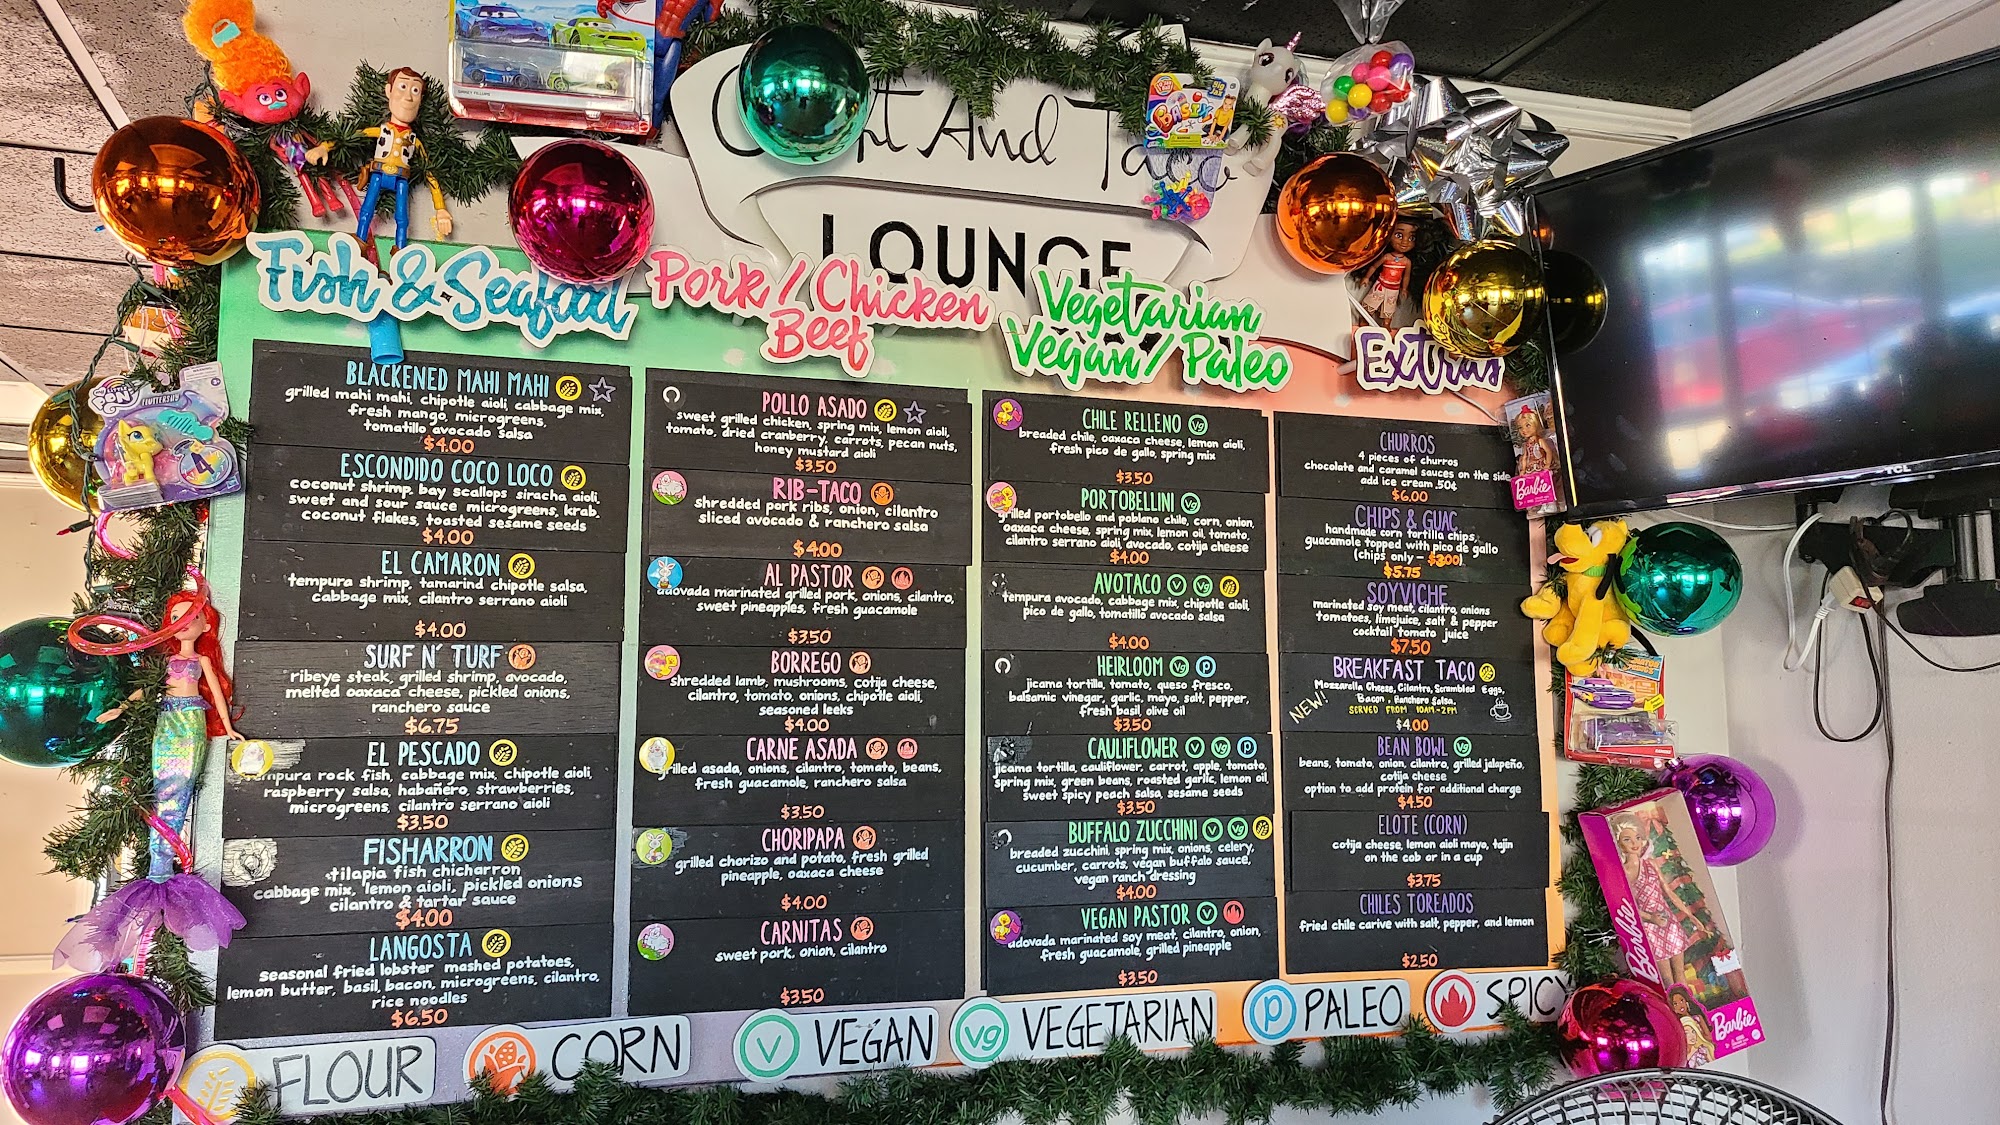 And Taco
LOUNGE
Fish & Seafood
BLACKENED MAHI MAHI
grilled mahi mahi, chipotle aioli, cabbage mix,
fresh mango, microgreens,
tomatillo avocado salsa
$4.00
ESCONDIDO COCO LOCO
coconut shrimp, bay scallops siracha aioli,
sweet and sour sauce microgreens, krab,
coconut flakes, toasted sesame seeds
$4.00
EL CAMARON
tempura shrimp, tamarind chipotle salsa,
cabbage mix, cilantro serrano aioli
$4.00
SURF N' TURF
ribeye steak, grilled shrimp, avocado,
melted oaxaca cheese, pickled onions,
ranchero sauce
$6.75
EL PESCADO
tempura rock fish, cabbage mix, chipotle aioli,
raspberry salsa, habañero, strawberries,
microgreens, cilantro serrano aioli
$3.50
FISHARRON
tilapia fish chicharron
cabbage mix, lemon aioli, pickled onions
cilantro & tartar sauce
$4.00
LANGOSTA
seasonal fried lobster mashed potatoes,
lemon butter, basil, bacon, microgreens, cilantro,
rice noodles
$6.50
Pork / Chicken
Beef
POLLO ASADO
sweet grilled chicken, spring mix, lemon aioli,
tomato, dried cranberry, carrots, pecan nuts,
honey mustard aioli
$3.50
RIB-TACO
shredded pork ribs, onion, cilantro
sliced avocado & ranchero salsa
$4.00
AL PASTOR
adovada marinated grilled pork, onions, cilantro,
sweet pineapples, fresh guacamole
$3.50
BORREGO
shredded lamb, mushrooms, cotija cheese,
cilantro, tomato, onions, chipotle aioli,
seasoned leeks
$4.00
CARNE ASADA
grilled asada, onions, cilantro, tomato, beans,
fresh guacamole, ranchero salsa
$3.50
CHORIPAPA
grilled chorizo and potato, fresh grilled
pineapple, oaxaca cheese
$4.00
CARNITAS
sweet pork, onion, cilantro
$3.50
Vegetarian
Vegan / Paleo
CHILE RELLENO vg
breaded chile, oaxaca cheese, lemon aioli,
fresh pico de gallo, spring mix
$3.50
PORTOBELLINI vg
grilled portobello and poblano chile, corn, onion,
oaxaca cheese, spring mix, lemon oil, tomato,
cilantro serrano aioli, avocado, cotija cheese
$4.00
AVOTACO v vg
tempura avocado, cabbage mix, chipotle aioli,
pico de gallo, tomatillo avocado salsa
$4.00
HEIRLOOM vg p
jicama tortilla, tomato, queso fresco,
balsamic vinegar, garlic, mayo, salt, pepper,
fresh basil, olive oil
$3.50
CAULIFLOWER v vg p
jicama tortilla, cauliflower, carrot, apple, tomato,
spring mix, green beans, roasted garlic, lemon oil,
sweet spicy peach salsa, sesame seeds
$3.50
BUFFALO ZUCCHINI v vg
breaded zucchini, spring mix, onions, celery,
cucumber, carrots, vegan buffalo sauce,
vegan ranch dressing
$4.00
VEGAN PASTOR v
adovada marinated soy meat, cilantro, onion,
fresh guacamole, grilled pineapple
$3.50
Extras
CHURROS
4 pieces of churros
chocolate and caramel sauces on the side
add ice cream .50¢
$6.00
CHIPS & GUAC
handmade corn tortilla chips,
guacamole topped with pico de gallo
(chips only - $3.00)
$5.75
SOYVICHE
marinated soy meat, cilantro, onions
tomatoes, limejuice, salt & pepper
cocktail tomato juice
$7.50
BREAKFAST TACO
Mozzarella Cheese, Cilantro, Scrambled Eggs,
Bacon, Ranchero Salsa.
NEW!
SERVED FROM 10AM-2PM
$4.00
BEAN BOWL vg
beans, tomato, onion, cilantro, grilled jalapeño,
cotija cheese
option to add protein for additional charge
$4.50
ELOTE (CORN)
cotija cheese, lemon aioli mayo, tajin
on the cob or in a cup
$3.75
CHILES TOREADOS
fried chile carive with salt, pepper, and lemon
$2.50
FLOUR
CORN
v VEGAN
vg VEGETARIAN
p PALEO
SPICY
TCL
Barbie
Barbie
Barbie
FLUTTERSHY
4